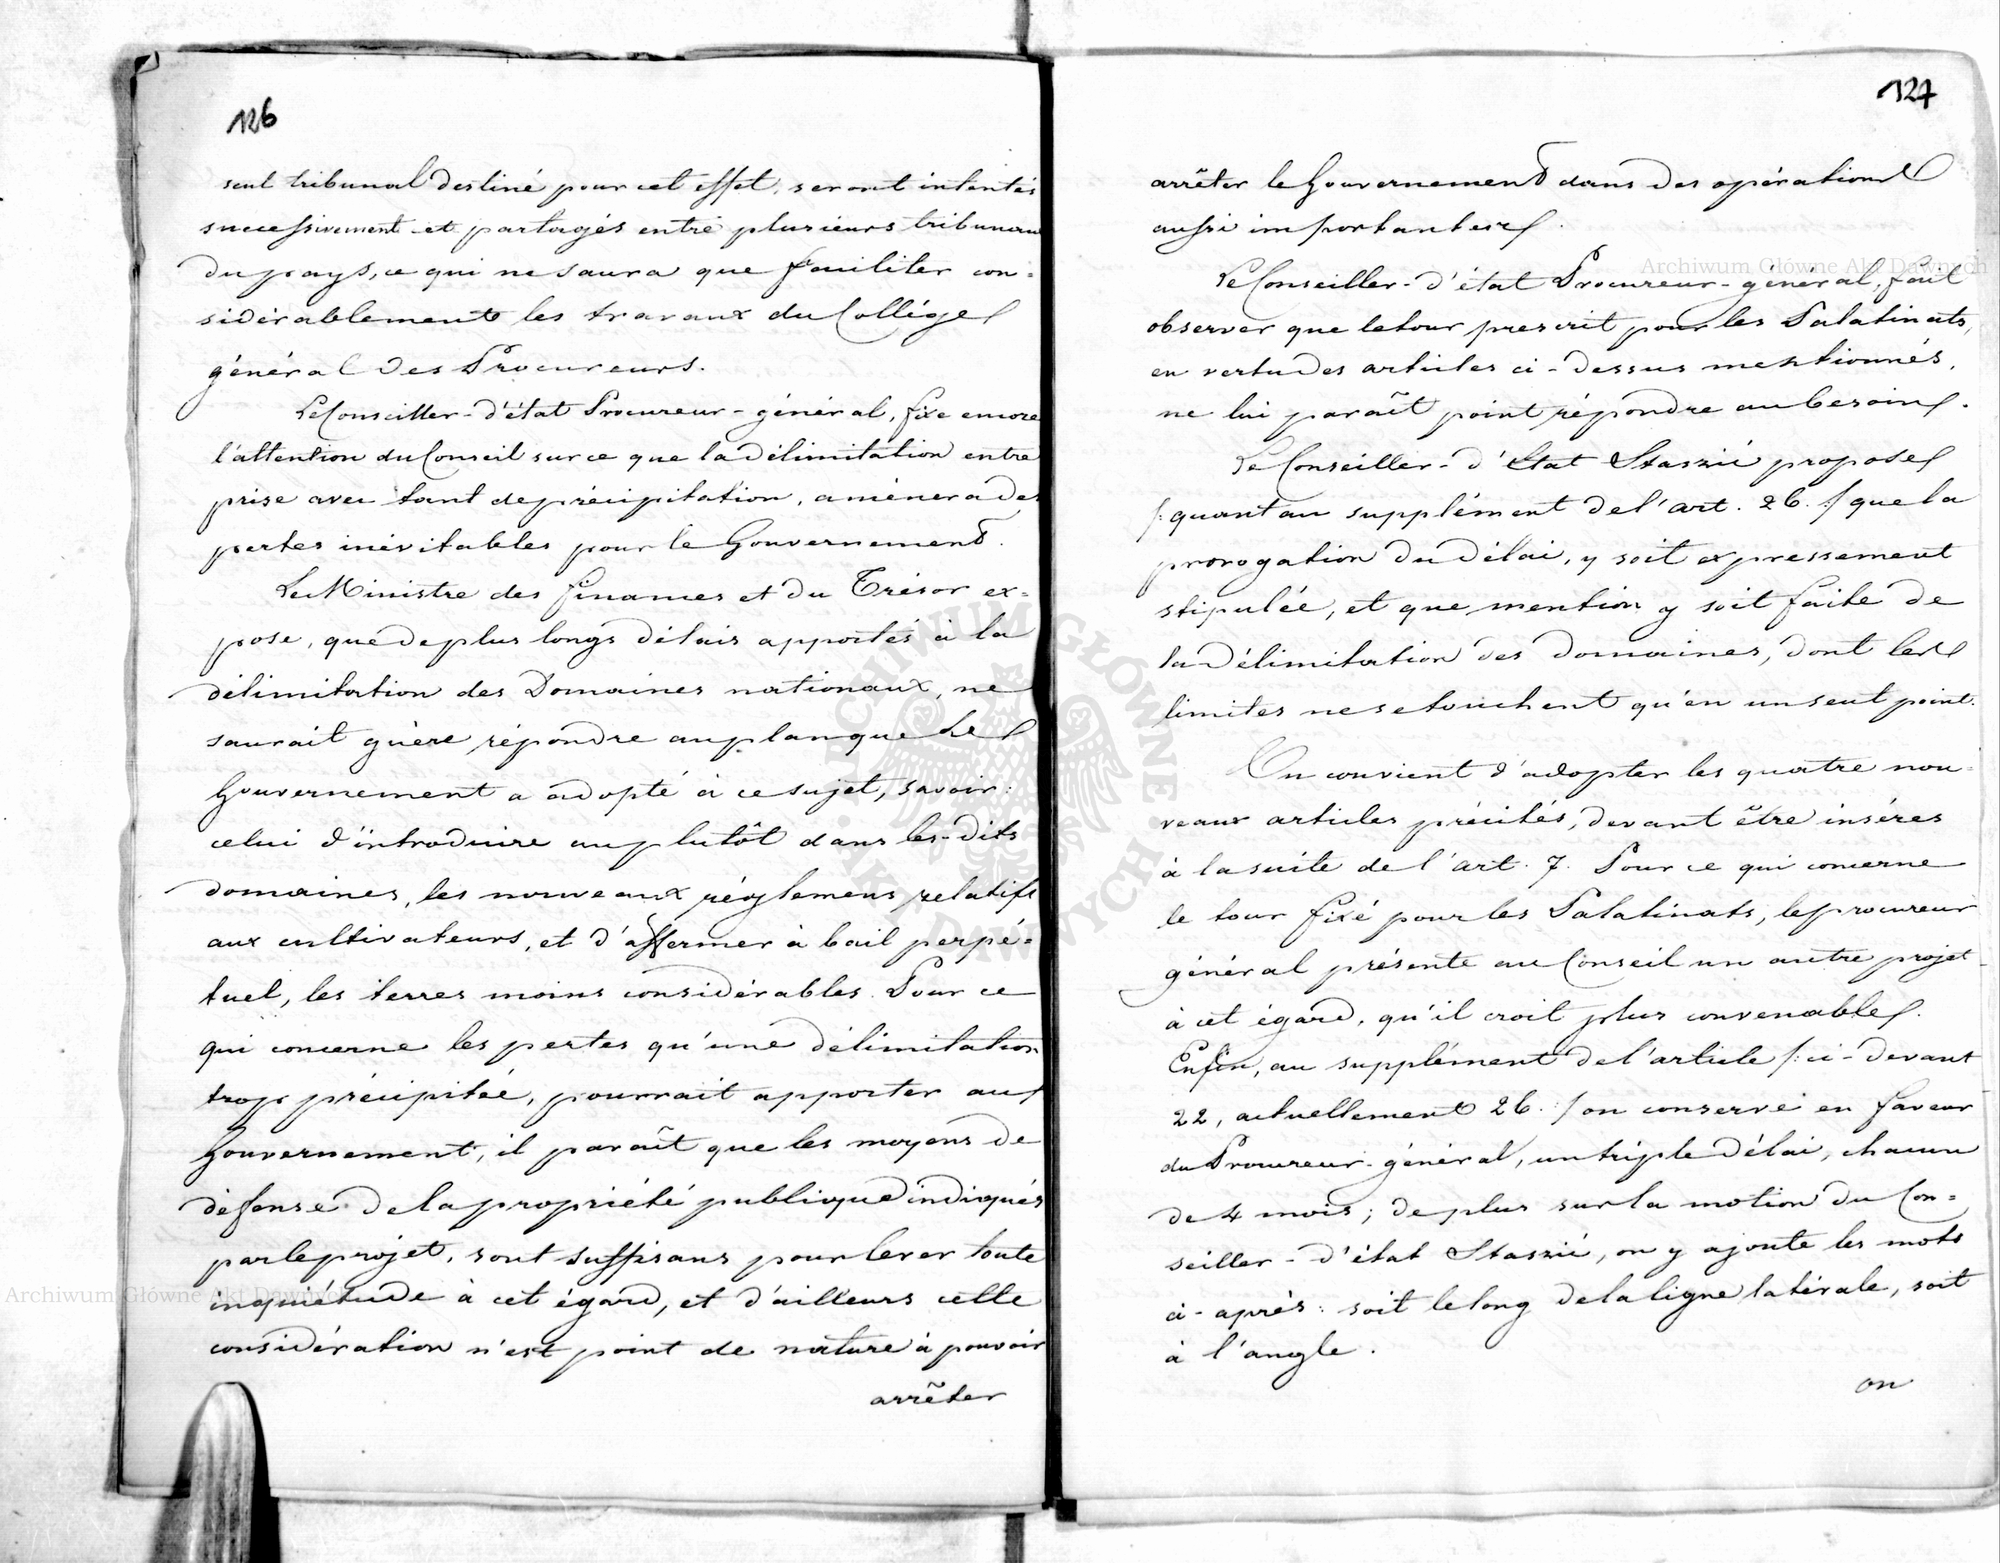 126
seul tribunal destiné pour cet effet, seront intentés
successivement et partagés entre plusieurs tribunaux
du pays, ce qui ne saura que faciliter con=
sidérablement les travaux du Collége
général des Procureurs.
Le Conseiller-d'état Procureur-général, fixe encore
l'attention du Conseil sur ce que la délimitation entre
prise avec tant de précipitation, aménera des
pertes inévitables pour le Gouvernement.
Le Ministre des finances et du Trésor ex=
pose, que de plus longs délais apportés à la
délimitation des Domaines nationaux, ne
saurait guère répondre au plan que le
Gouvernement a adopté à ce sujet, savoir:
celui d'introduire au plutôt dans les-dits
domaines, les nouveaux réglemens relatifs
aux cultivateurs, et d'affermer à bail perpé=
tuel, les terres moins considérables. Pour ce
qui concerne les pertes qu'une délimitation
trop précipitée, pourrait apporter au
Gouvernement, il paraît que les moyens de
défense de la propriété publique indiqués
par le projet, sont suffisans pour lever toute
inquiétude à cet égard, et d'ailleurs cette
considération n'est point de nature à pouvoir
arrêter
127
arrêter le Gouvernement dans des opérations
aussi importantes.
Le Conseiller-d'état Procureur-général, fait
observer que le tour prescrit pour les Palatinats,
en vertu des articles ci-dessus mentionnés,
ne lui paraît point répondre au besoin.
Le Conseiller-d'Etat Staszic propose
/:quant au supplément de l'art. 26.:/ que la
prorogation du délai, y soit expressement
stipulée, et que mention y soit faite de
la délimitation des domaines, dont les
limites ne se touchent qu'en un seul point.
On convient d'adopter les quatre nou=
veaux articles précités, devant être insérés
à la suite de l'art. 7. Pour ce qui concerne
le tour fixé pour les Palatinats, le procureur
général présente au Conseil un autre projet
à cet égard, qu'il croit plus convenable.
Enfin, au supplément de l'article /:ci-devant
22, actuellement 26.:/ on conserve en faveur
du Procureur-général, un triple délai, chacun
de 4 mois; de plus sur la motion du Con=
seiller-d'état Staszic, on y ajoute les mots
ci-après: soit le long de la ligne latérale, soit
à l'angle.
on
Archiwum Główne Akt Dawnych
Archiwum Główne Akt Dawnych
ARCHIWUM GŁÓWNE AKT DAWNYCH